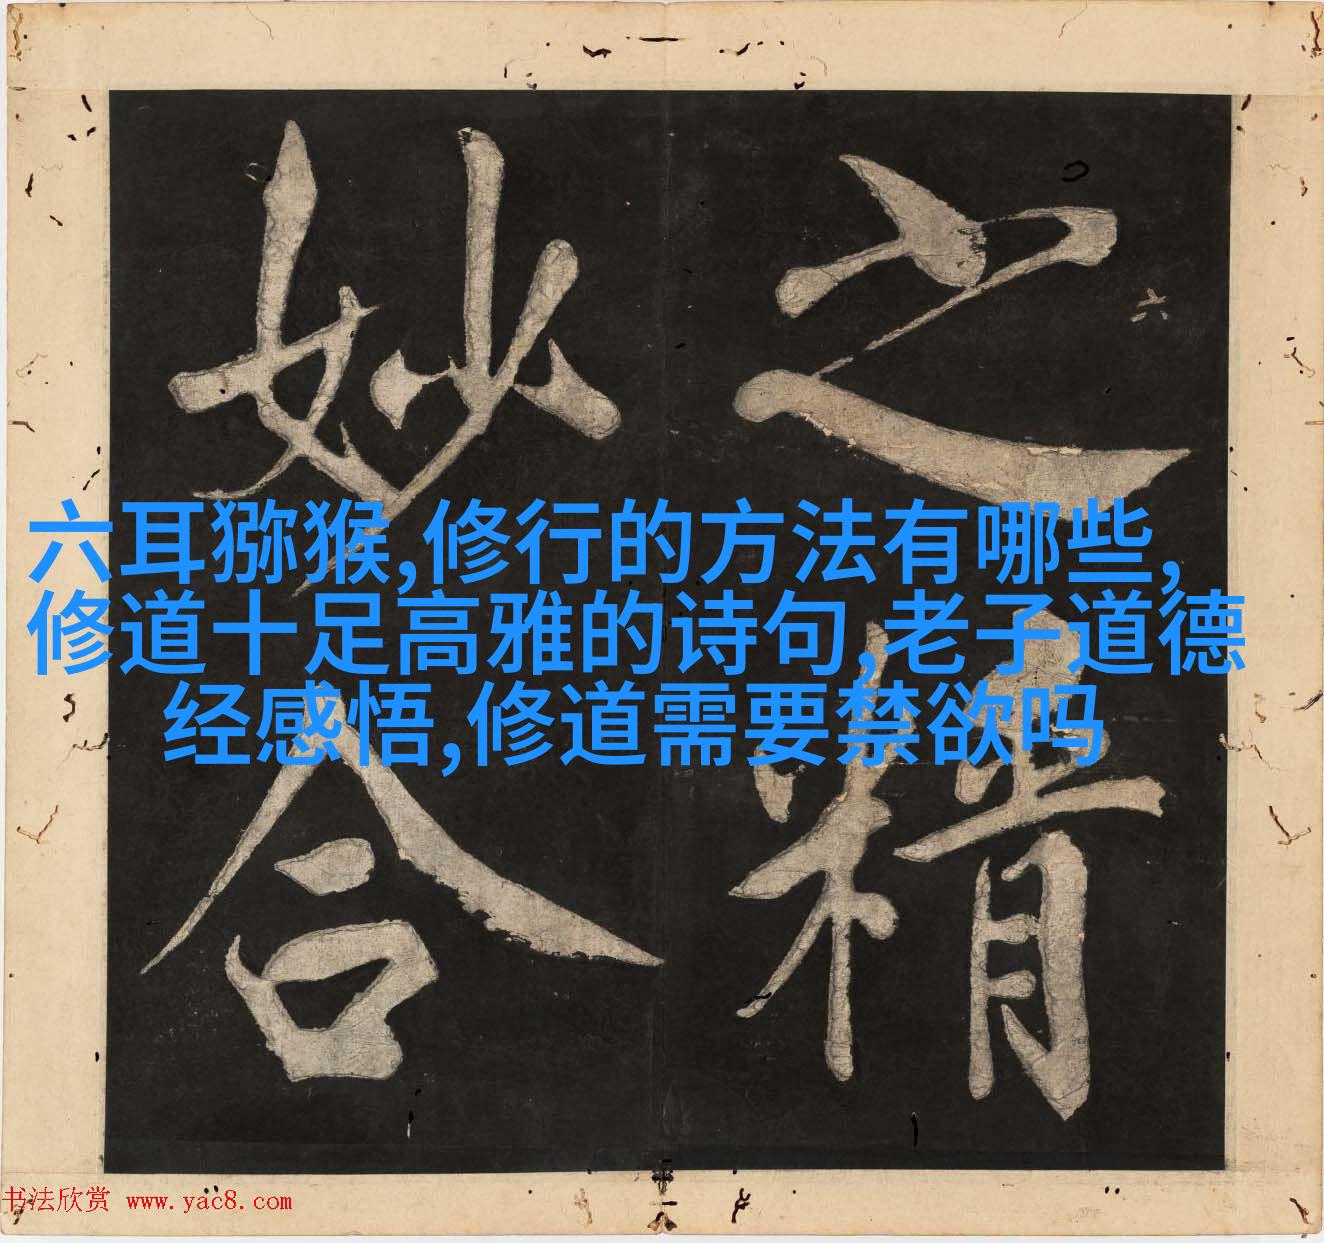 之精
妙合
六
六耳猕猴,修行的方法有哪些,
修道十足高雅的诗句,老子道德
经感悟,修道需要禁欲吗
书法欣赏 www.yac8.com